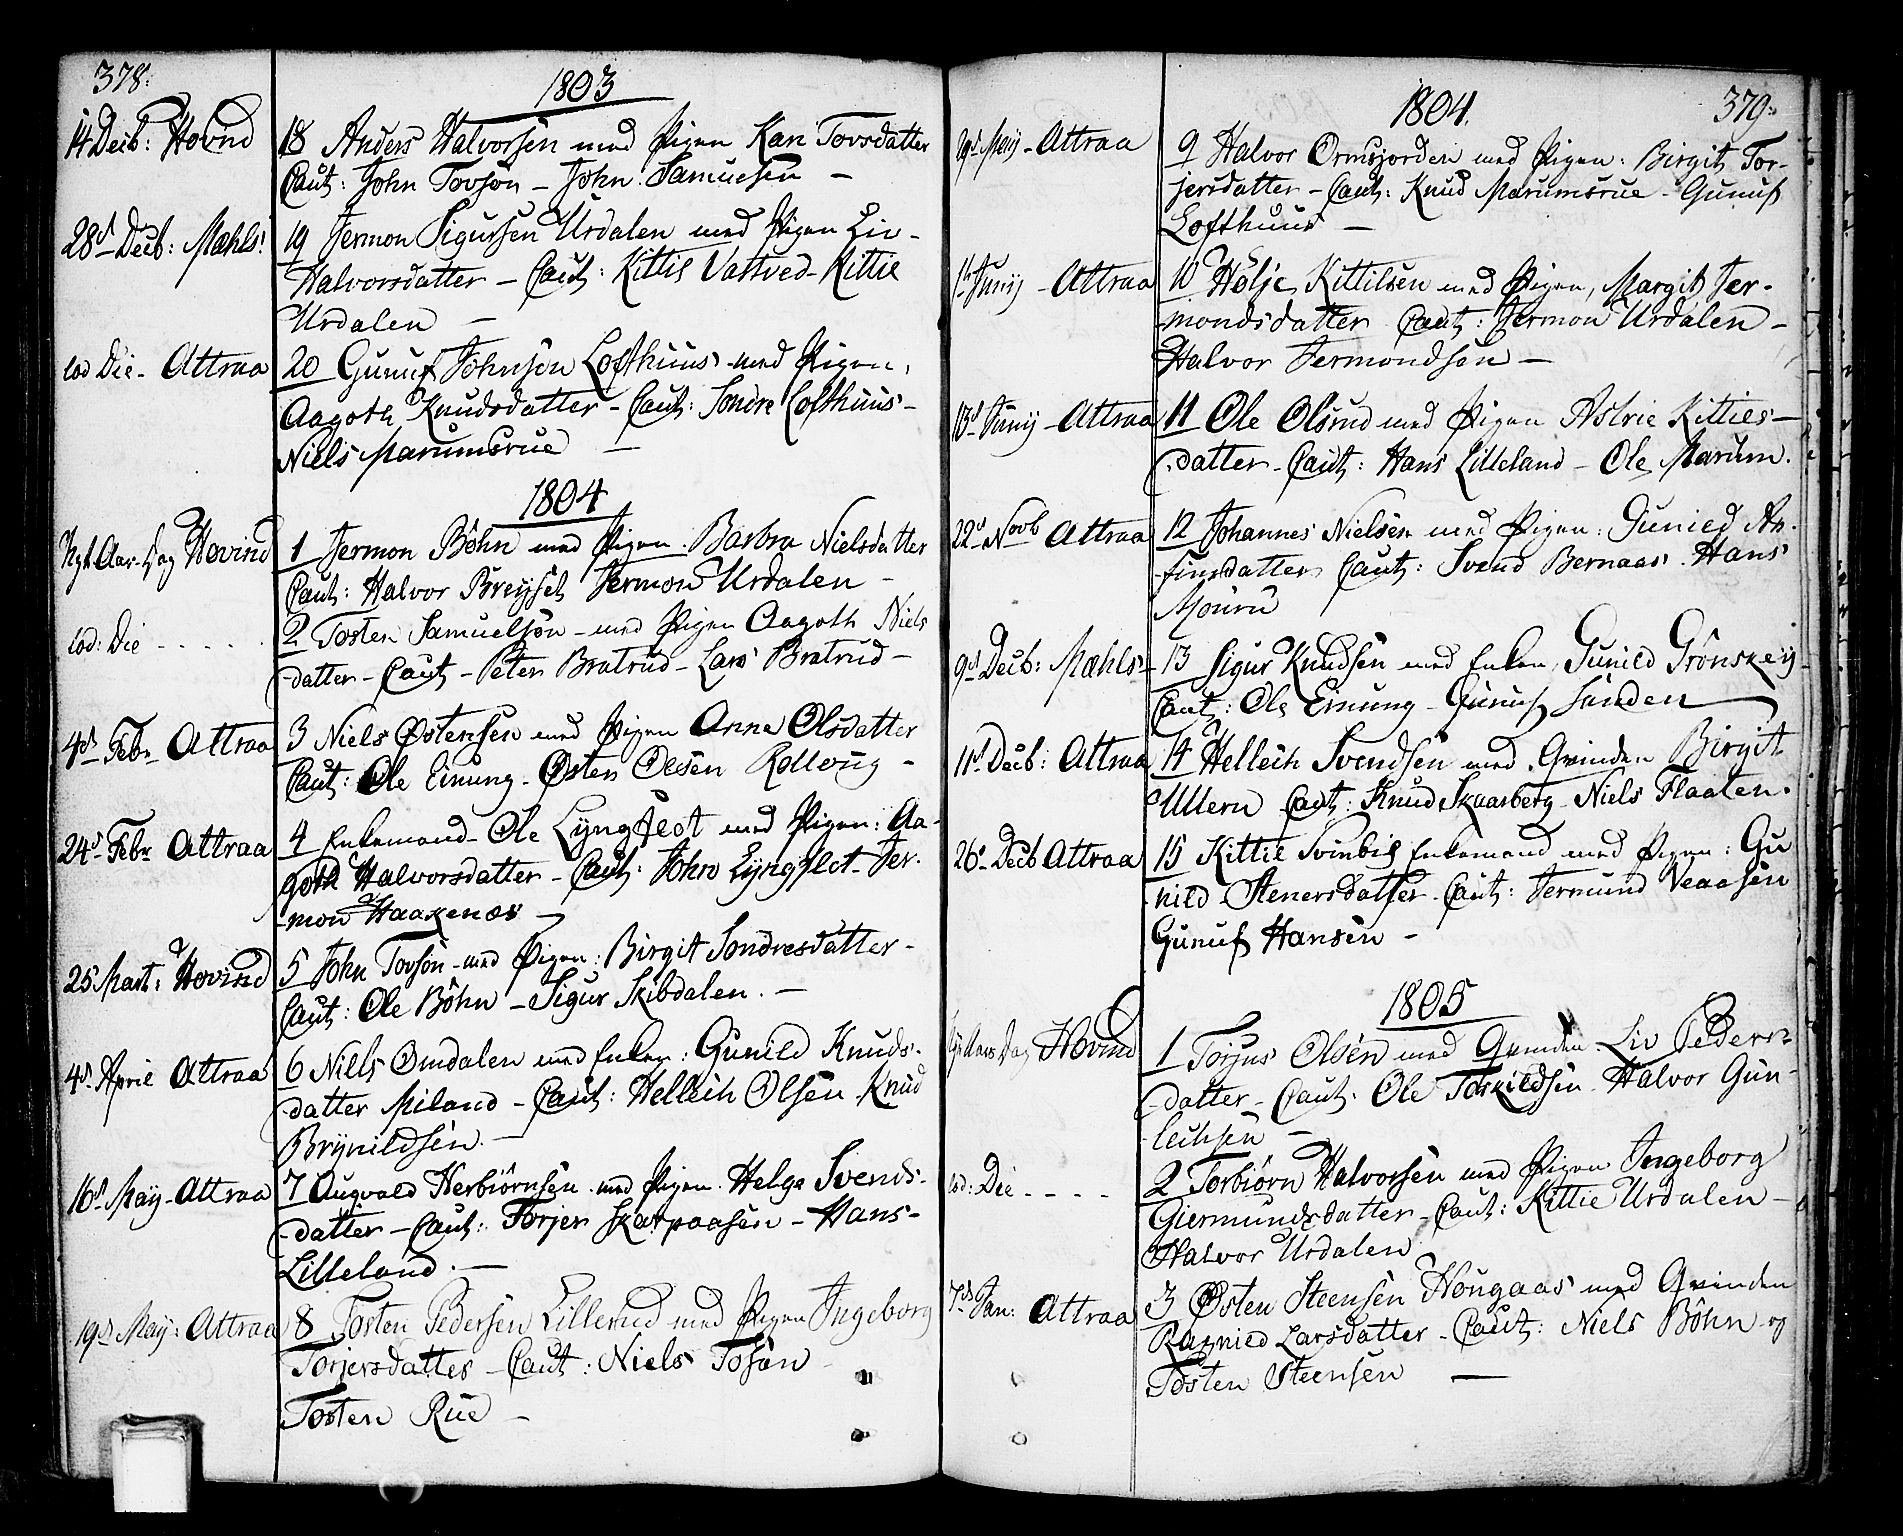 378.
1803
14 Decb: Hovind 18 Anders Halvorsen med Pigen Kari Tovsdatter
Caut: John Tovsøn – John Samuelsen –
28d Decb: Mæhls: 19 Jermon Sigursen Urdalen med Pigen Liv
Halvorsdatter – Caut: Kittil Vatved – Kittil
Urdalen –
eod Die – Attraa 20 Gunuf Johnsøn Lofthuus med Pigen,
Aagoth Knudsdatter – Caut: Sondre Lofthuus –
Niels Marumsrue –
1804
Nyt Aars-Dag Hovind 1 Jermon Bøhn med Pigen Barbra Nielsdatter
Caut: Halvor Breyset Jermon Urdalen –
eod: Die - - - - - 2 Tosten Samuelsøn – med Pigen Aagoth Niels
datter – Caut – Peter Bratrud – Lars Bratrud –
4d Febr Attraa 3 Niels Østensen med Pigen Anne Olsdatter
Caut: Ole Einung – Østen Olsen Rollvug –
24d Febr Attraa 4 Enkemand – Ole Lyngflot med Pigen: Aa-
goth Halvorsdatter – Caut: John Lyngflot – Jer-
mon Haakenæs –
25 Mart: Hovind 5 John Tovsøn – med Pigen: Birgit Sondresdatter –
Caut: Ole Bøhn – Sigur Skibdalen. –
4d April Attraa 6 Niels Omdalen med Enken: Gunild Knuds-
datter Miland – Caut: Helleih Olsen Knud
Brynildsen. –
16d May – Attraa 7 Augvald Herbiørnsen med Pigen Helge Svends-
datter – Caut: Torjer Skarpaasen – Hans –
Lilleland. –
19d May: Attraa 8 Tosten Pedersen Lillerud med Pigen Ingeborg
Torjersdatter – Caut: Niels Tosøn
Tosten Rue –
1804.
379.
29d Maij – Attraa 9 Halvor Ormsjorden med Pigen: Birgit Tor-
jersdatter – Caut: Knud Marumsrue – Gunuf
Lofthuus –
Junij – Attraa 10 Hølje Kittilsen med Pigen, Margit Jer-
mondsdatter Caut: Jermon Urdalen –
Halvor Jermondsøn –
13d Junij – Attraa 11 Ole Olsrud med Pigen Astrie Kittils –
datter – Caut: Hans Lilleland – Ole Marum.
22d Novb Attraa 12 Johannes Nielsen med Pigen: Gunild An-
finsdatter Caut: Svend Bernaas Hans
Mouru
9d Decb: Mæhls – 13 Sigur Knudsen med Enken, Gunild Grønskeij
Caut: Ole Einung – Gunuf Sanden
11d Decb: Attraa 14 Helleih Svendsen med Qvinden Birgit
Ullern Caut: Knud Skaarberg – Niels Flaaten.
26d Decb Attraa 15 Kittil Svinbil Enkemand med Pigen: Gu
nild Stenersdatter – Caut: Jermund Veaasen
Gunuf Hansen –
1805
Nyt Aars Dag Hovind 1 Torjus Olsen med Qvinden Liv Peders-
datter – Caut. Ole Torkildsen Halvor Gun-
leichsen –
eod: Die - - - - 2 Torbiørn Halvorsen med Pigen Ingeborg
Giermundsdatter – Caut: Kittil Urdalen –
Halvor Urdalen
7d Jan: Attraa 3 Østen Steensen Hougaas med Qvinden
Ragnild Larsdatter – Caut: Niels Bøhn og
Tosten Steensen –